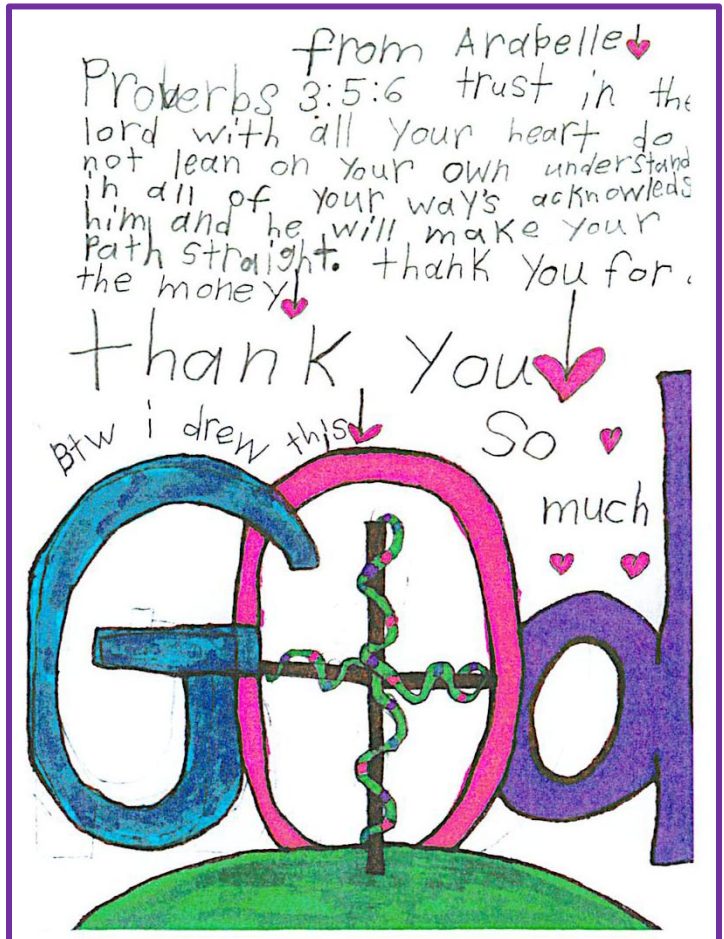 from Arabelle
Proverbs 3:5:6 trust in the
lord with all your heart do
not lean on your own understand
in all of your way's acknowledg
him and he will make your
path straight. thank you for
the money
thank you
Btw i drew this
so
much
GOd